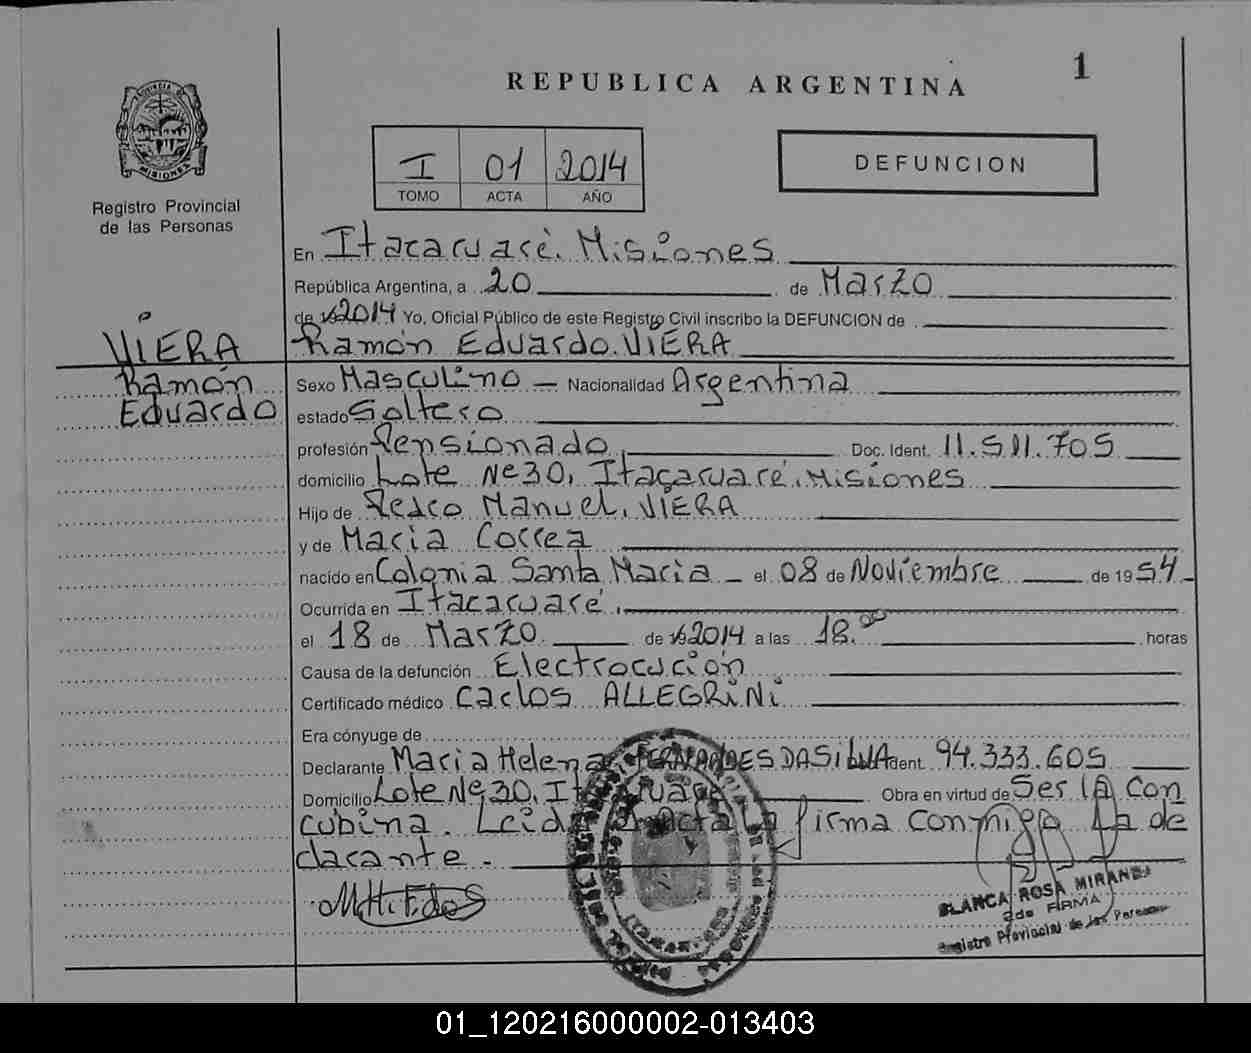 REPUBLICA ARGENTINA
1
PROVINCIA DE
MISIONES
Registro Provincial
de las Personas
I 01 2014
TOMO ACTA AÑO
DEFUNCION
En Itacaruaré. Misiones
República Argentina, a 20 de Marzo
de 2014 Yo, Oficial Público de este Registro Civil inscribo la DEFUNCION de
VIERA
Ramón
Eduardo
Ramón Eduardo. VIERA
Sexo Masculino — Nacionalidad Argentina
estado Soltero
profesión Pensionado Doc. Ident. 11.511.705
domicilio Lote Nº 30, Itacaruaré. Misiones
Hijo de Pedro Manuel. VIERA
y de Maria Correa
nacido en Colonia Santa Maria — el 08 de Noviembre de 1954
Ocurrida en Itacaruaré.
el 18 de Marzo de 2014 a las 18.00 horas
Causa de la defunción Electrocución
Certificado médico Carlos ALLEGRINI
Era cónyuge de
Declarante Maria Helena FERNANDES DA SILVA Ident. 94.333.605
Domicilio Lote Nº 30. Obra en virtud de Ser la con
cubina. Leida acta la firma conmigo La de
clarante.
BLANCA ROSA MIRANDA
2da FIRMA
Registro Provincial de las Personas
01_120216000002-013403